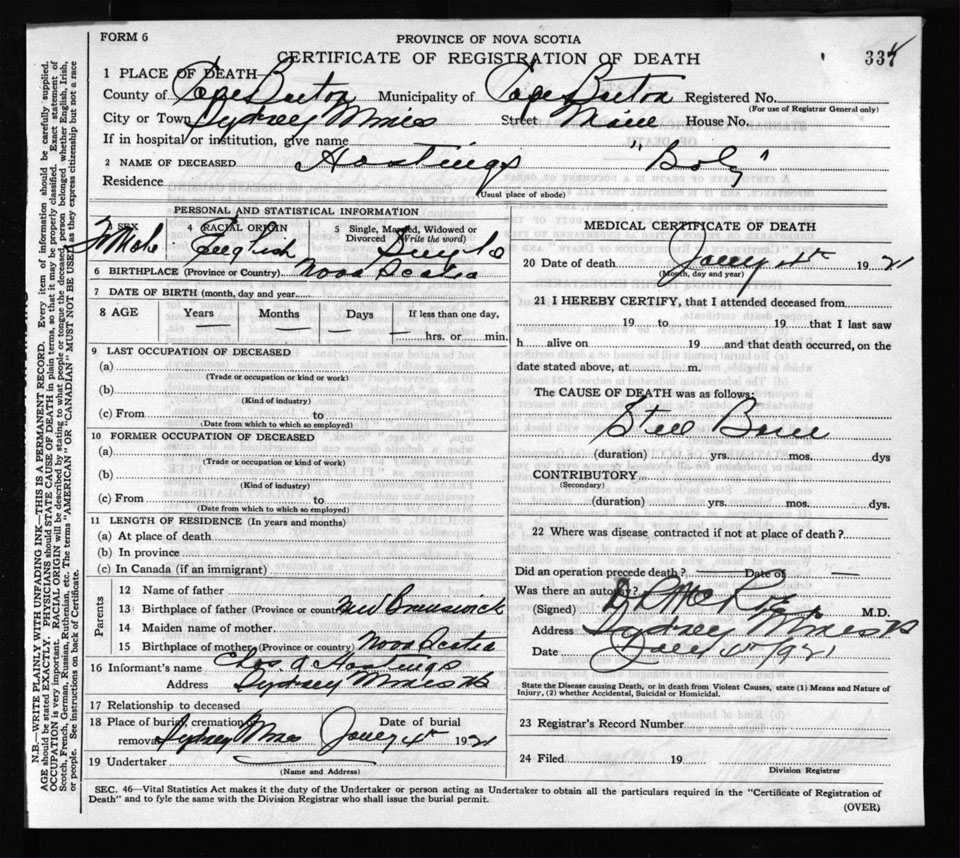 FORM 6
PROVINCE OF NOVA SCOTIA
CERTIFICATE OF REGISTRATION OF DEATH
1 PLACE OF DEATH—
County of Cape Breton Municipality of Cape Breton Registered No.
(For use of Registrar General only)
City or Town Sydney Mines Street Main House No.
If in hospital or institution, give name
2 NAME OF DECEASED Hastings "Boby"
Residence
(Usual place of abode)
PERSONAL AND STATISTICAL INFORMATION
3 SEX Male 4 RACIAL ORIGIN English 5 Single, Married, Widowed or Divorced (Write the word) Single
6 BIRTHPLACE (Province or Country) Nova Scotia
7 DATE OF BIRTH (month, day and year
8 AGE Years Months Days If less than one day,
— — — — hrs. or — min.
9 LAST OCCUPATION OF DECEASED
(a)
(Trade or occupation or kind or work)
(b)
(Kind of industry)
(c) From to
(Date from which to which so employed)
10 FORMER OCCUPATION OF DECEASED
(a)
(Trade or occupation or kind or work)
(b)
(Kind of industry)
(c) From to
(Date from which to which so employed)
11 LENGTH OF RESIDENCE (In years and months)
(a) At place of death
(b) In province
(c) In Canada (if an immigrant)
Parents
12 Name of father
13 Birthplace of father (Province or country) New Brunswick
14 Maiden name of mother
15 Birthplace of mother (Province or country) Nova Scotia
16 Informant's name Chas A Hastings
Address Sydney Mines NS
17 Relationship to deceased
18 Place of burial, cremation, Date of burial
removal Sydney Mines Jany 4th 1921
19 Undertaker
(Name and Address)
MEDICAL CERTIFICATE OF DEATH
20 Date of death Jany 4th 1921
(Month, day and year)
21 I HEREBY CERTIFY, that I attended deceased from
19 to 19 that I last saw
h alive on 19 and that death occurred, on the
date stated above, at m.
The CAUSE OF DEATH was as follows:
Still Born
(duration) yrs. mos. dys
CONTRIBUTORY
(Secondary)
(duration) yrs. mos. dys.
22 Where was disease contracted if not at place of death?
Did an operation precede death? — Date of —
Was there an autopsy?
(Signed) M.D.
Address Sydney Mines NS
Date Jany 4th 1921
State the Disease causing Death, or in death from Violent Causes, state (1) Means and Nature of
Injury, (2) whether Accidental, Suicidal or Homicidal.
23 Registrar's Record Number
24 Filed 19
Division Registrar
SEC. 46—Vital Statistics Act makes it the duty of the Undertaker or person acting as Undertaker to obtain all the particulars required in the "Certificate of Registration of
Death" and to fyle the same with the Division Registrar who shall issue the burial permit.
(OVER)
N.B.—WRITE PLAINLY WITH UNFADING INK—THIS IS A PERMANENT RECORD. Every item of information should be carefully supplied.
AGE should be stated EXACTLY. PHYSICIANS should STATE CAUSE OF DEATH in plain terms, so that it may be properly classified. Exact statement of
OCCUPATION is very important. RACIAL ORIGIN will be described by stating to what people or tongue the deceased person belonged whether English, Irish,
Scotch, French, German, Russian, Ruthenian, etc. The terms "AMERICAN" OR "CANADIAN" MUST NOT BE USED as they express citizenship but not a race
or people. See instructions on back of Certificate.